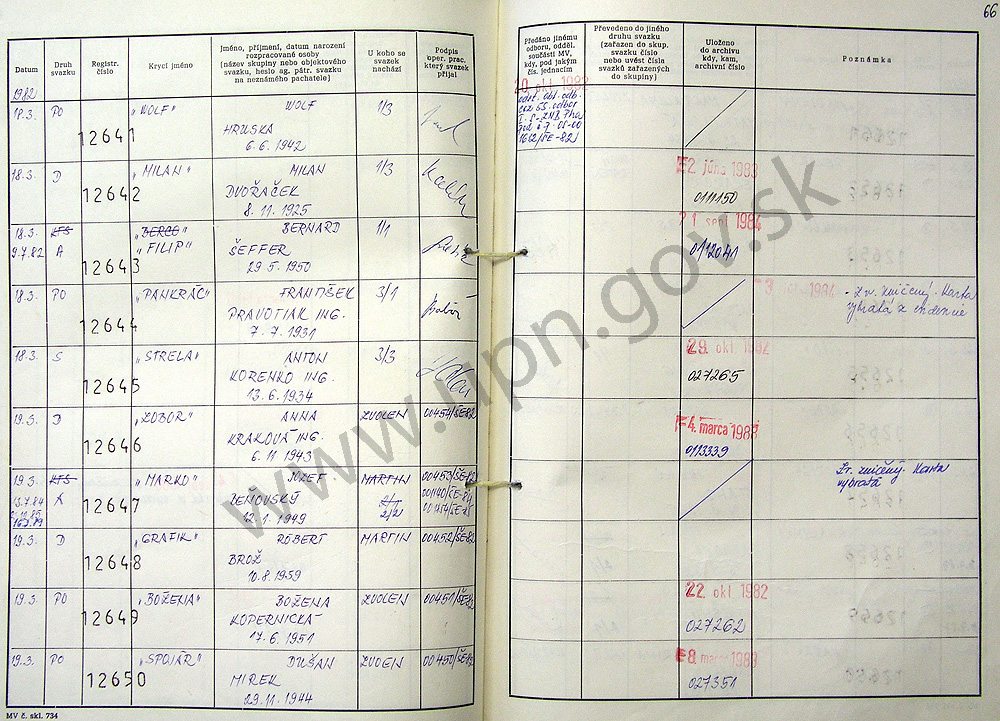 66
Datum
Druh svazku
Registr. číslo
Krycí jméno
Jméno, příjmení, datum narození
rozpracované osoby
(název skupiny nebo objektového
svazku, heslo ag. pátr. svazku
na neznámého pachatele)
U koho se
svazek
nachází
Podpis
oper. prac.
který svazek
přijal
Předáno jinému
odboru, odděl.
součásti MV,
kdy, pod jakým
čís. jednacím
Převedeno do jiného
druhu svazku
(zařazen do skup.
svazku číslo
nebo uvést čísla
svazků zařazených
do skupiny)
Uloženo
do archivu
kdy, kam,
archivní číslo
Poznámka
1982
18.3. PO 12641 "WOLF" WOLF 1/3
HRUSKA
6.6.1942
18.3. D 12642 "MILAN" MILAN 1/3 2. júna 1983
DVOŘAČEK 0111150
8.11.1925
18.3. KTS 12643 BERNARD 1/1 21. sept. 1984
9.7.82 A "FILIP" ŠEFFER 0112041
29.5.1950
18.3. PO 12644 "PANKRÁC" FRANTIŠEK 3/1 - Zv. zničený. Karta
PRAVOTIAK ING. vybratá z evidencie
7.7.1931
18.3. S 12645 "STRELA" ANTON 3/3 29. okt. 1982
KORENKO ING. 027265
13.6.1934
19.3. D 12646 "ZOBOR" ANNA ZVOLEN 00454/ŠE-82 4. marca 1983
KRAKOVÁ ING. 0113339
6.11.1943
19.3. KTS 12647 "MARKO" JOZEF MARTIN Zv. zničený. Karta
13.7.84 A ZEMOVSKÝ 2/2 vybratá
12.1.1949
19.3. D 12648 "GRAFIK" ROBERT MARTIN 00452/ŠE-82
BROŽ
10.8.1959
19.3. PO 12649 "BOŽENA" BOŽENA ZVOLEN 00451/ŠE-82 22. okt. 1982
KOPERNICKÁ 027262
17.6.1951
19.3. PO 12650 "SPOJÁR" DUŠAN ZVOEN 00450/ŠE-82 8. marca 1983
MIREK 027351
29.11.1944
MV č. skl. 734
www.upn.gov.sk